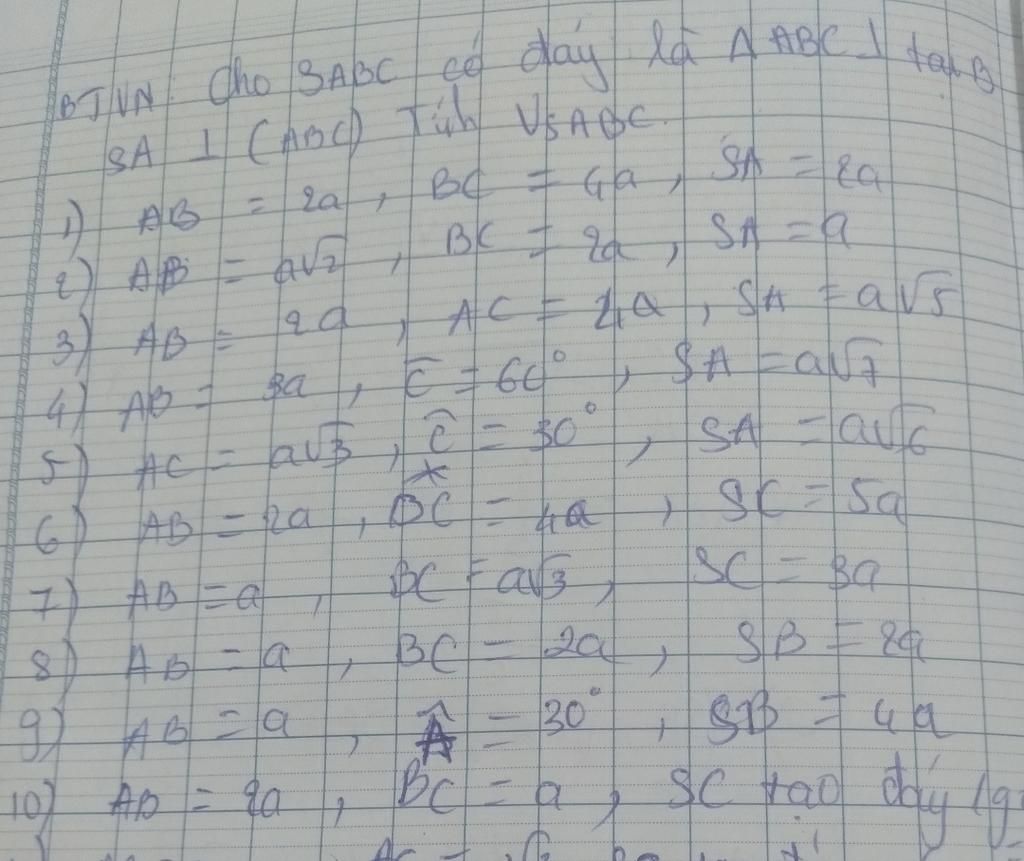 BTVN: Cho SABC có đáy là Δ ABC ⊥ tại B
SA ⊥ (ABC) Tính VSABC.
1) AB = 2a, BC = 4a, SA = 2a
2) AB = a√2, BC = 2a, SA = a
3) AB = 2a, AC = 4a, SA = a√5
4) AB = 3a, Ĉ = 60°, SA = a√7
5) AC = a√3, Ĉ = 30°, SA = a√6
6) AB = 2a, BC = 4a, SC = 5a
7) AB = a, BC = a√3, SC = 3a
8) AB = a, BC = 2a, SB = 2a
9) AB = a, Â = 30°, SB = 4a
10) AB = 2a, BC = a, SC tạo đáy